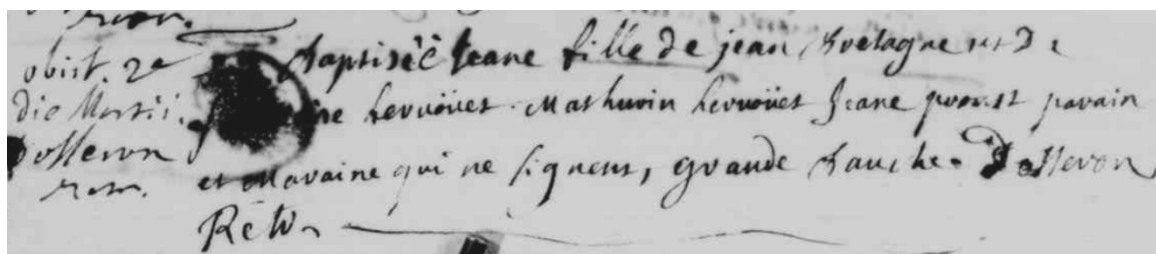 obiit. 2a
die Martii.
Dosseron
baptisée Jeane fille de jean bretagne et de
hervoüet. Mathurin hervoüet Jeane provst parain
et Maraine qui ne signent, grande bauche. Dosseron
Rect.